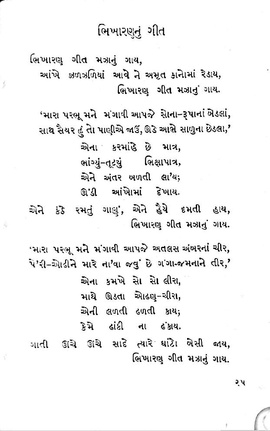 ભિખારણનું ગીત
ભિખારણ ગીત મઝાનું ગાય,
આંખે ઝળઝળિયાં આવે ને અમૃત કાનોમાં રેડાય,
ભિખારણ ગીત મઝાનું ગાય.
'મારા પરભુ મને મંગાવી આપજે સોના-રૂપાનાં બેડલાં,
સાથ સૈયર હું તો પાણીએ જાઉં, ઊડે આભે સાળુના છેડલા,'
એના કરમાંહે છે માત્ર,
ભાંગ્યું-તૂટ્યું ભિક્ષાપાત્ર,
એને અંતર બળતી લાય;
ઊંડી આંખોમાં દેખાય.
એને કંઠે રમતું ગાણું, એને હૈયે દમતી હાય,
ભિખારણ ગીત મઝાનું ગાય.
'મારા પરભુ મને મંગાવી આપજે અતલસ અંબરનાં ચીર,
પે'રી-ઓઢીને મારે ના'વા જવું છે ગંગા-જમનાને તીર,'
એના કમખે સો સો લીરા,
માથે ઊડતા ઓઢણ-ચીરા,
એની લળતી ઢળતી કાય;
કેમે ઢાંકી ના ઢંકાય.
ગાતી ઊંચે ઊંચે સાદે ત્યારે ઘાંટો બેસી જાય,
ભિખારણ ગીત મઝાનું ગાય.
૨૫